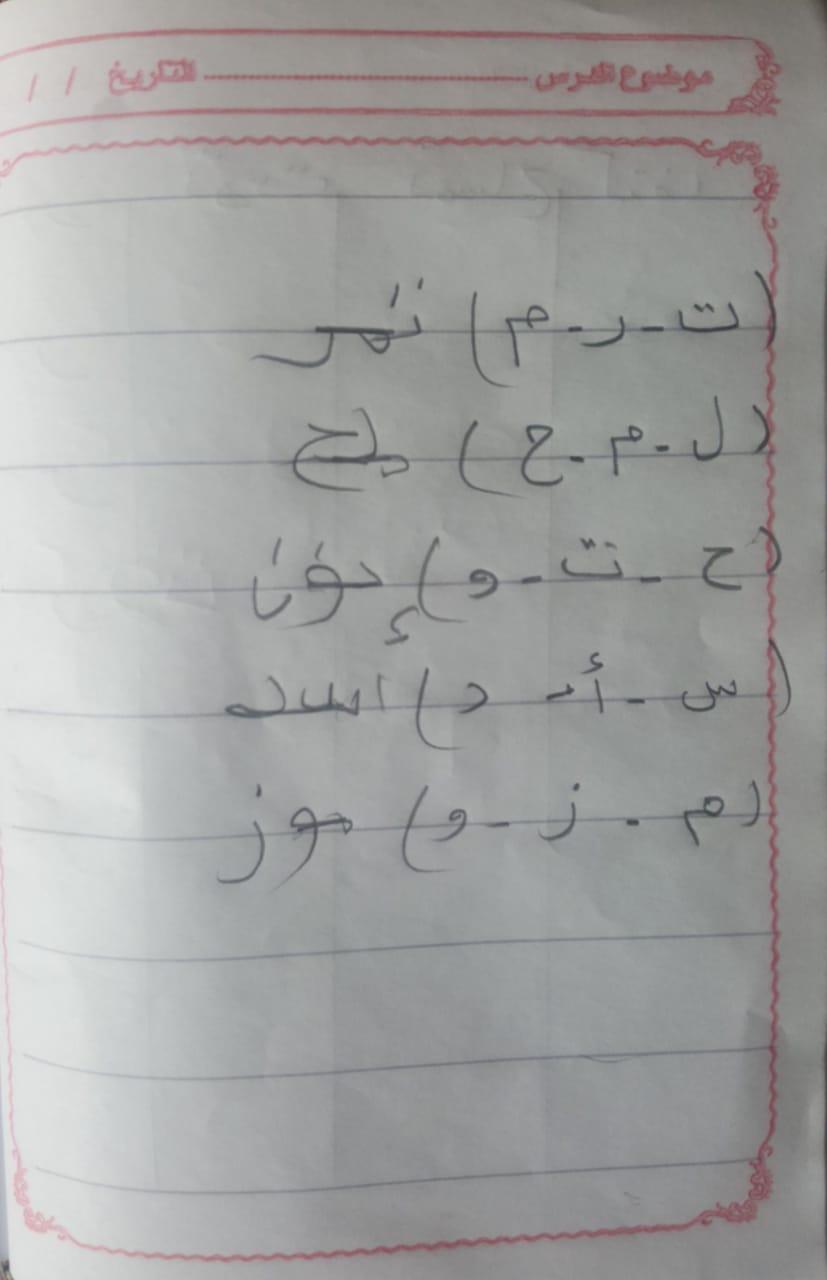 موضوع الدرس ........................ التاريخ / /
(ت - ر - م) تمر
(ل - م - ح) ملح
(ح - ت - و) حوت
(س - أ - د) أسد
(م - ز - و) موز